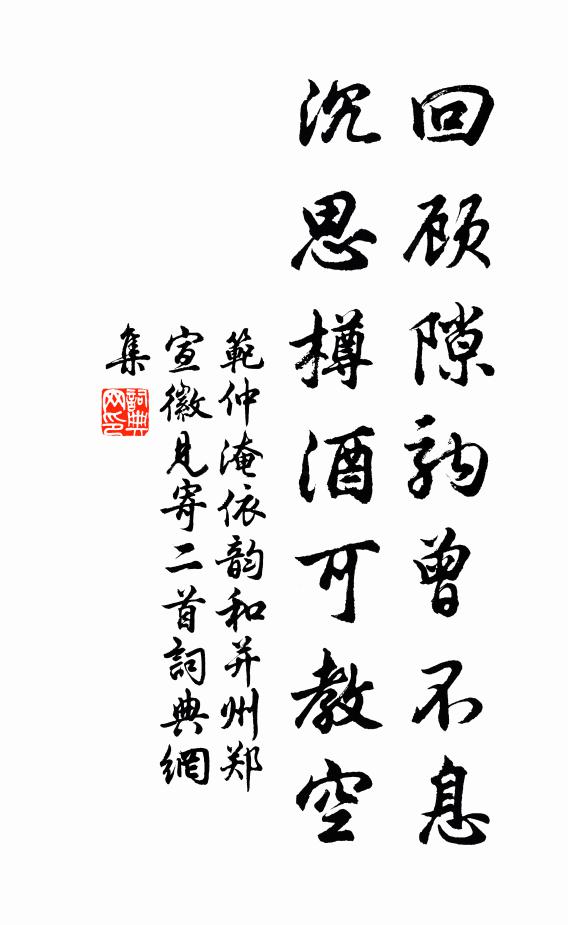 回顾隙驹曾不息
沉思樽酒可教空
範仲淹依韵和并州郑
宣徽见寄二首詞典網
集
詞典
网印